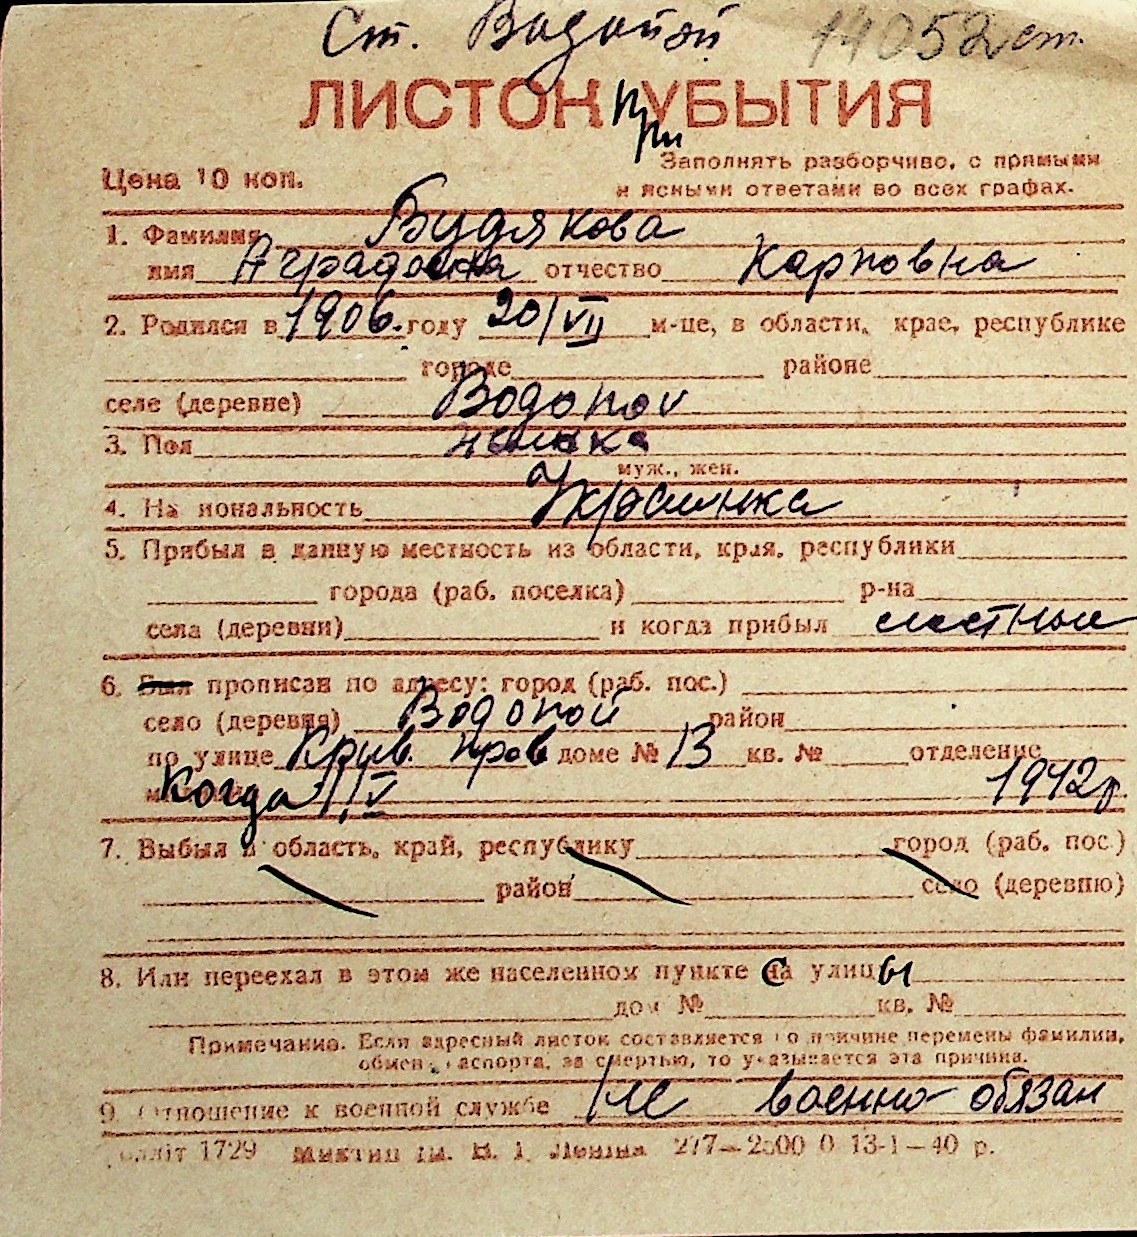 Ст. Водопой 14052 ст.
ЛИСТОК УБЫТИЯ
При
Цена 10 коп.
Заполнять разборчиво, с прямыми
и ясными ответами во всех графах.
1. Фамилия Будякова
имя отчество Карповна
2. Родился в 1906. году 20/VII м-це, в области, крае, республике
городе районе
селе (деревне) Водопой
3. Пол
муж., жен.
4. На иональность Украинка
5. Прибыл в данную местность из области, края, республики
города (раб. поселка) р-на
села (деревни) и когда прибыл местные
6. Был прописан по адресу: город (раб. пос.)
село (деревня) Водопой район
по улице Крив. Пров доме № 13 кв. № отделение
Когда 1/IV 1942 г.
7. Выбыл в область, край, республику город (раб. пос.)
район село (деревню)
8. Или переехал в этом же населенном пункте са улицы
дом № кв. №
Примечание. Если адресный листок составляется по причине перемены фамилии,
обмен паспорта, за смертью, то указывается эта причина.
9. Отношение к военной службе Не военно-обязан
1729 Ім. В. І. Леніна 277—2500 0 13-1—40 р.